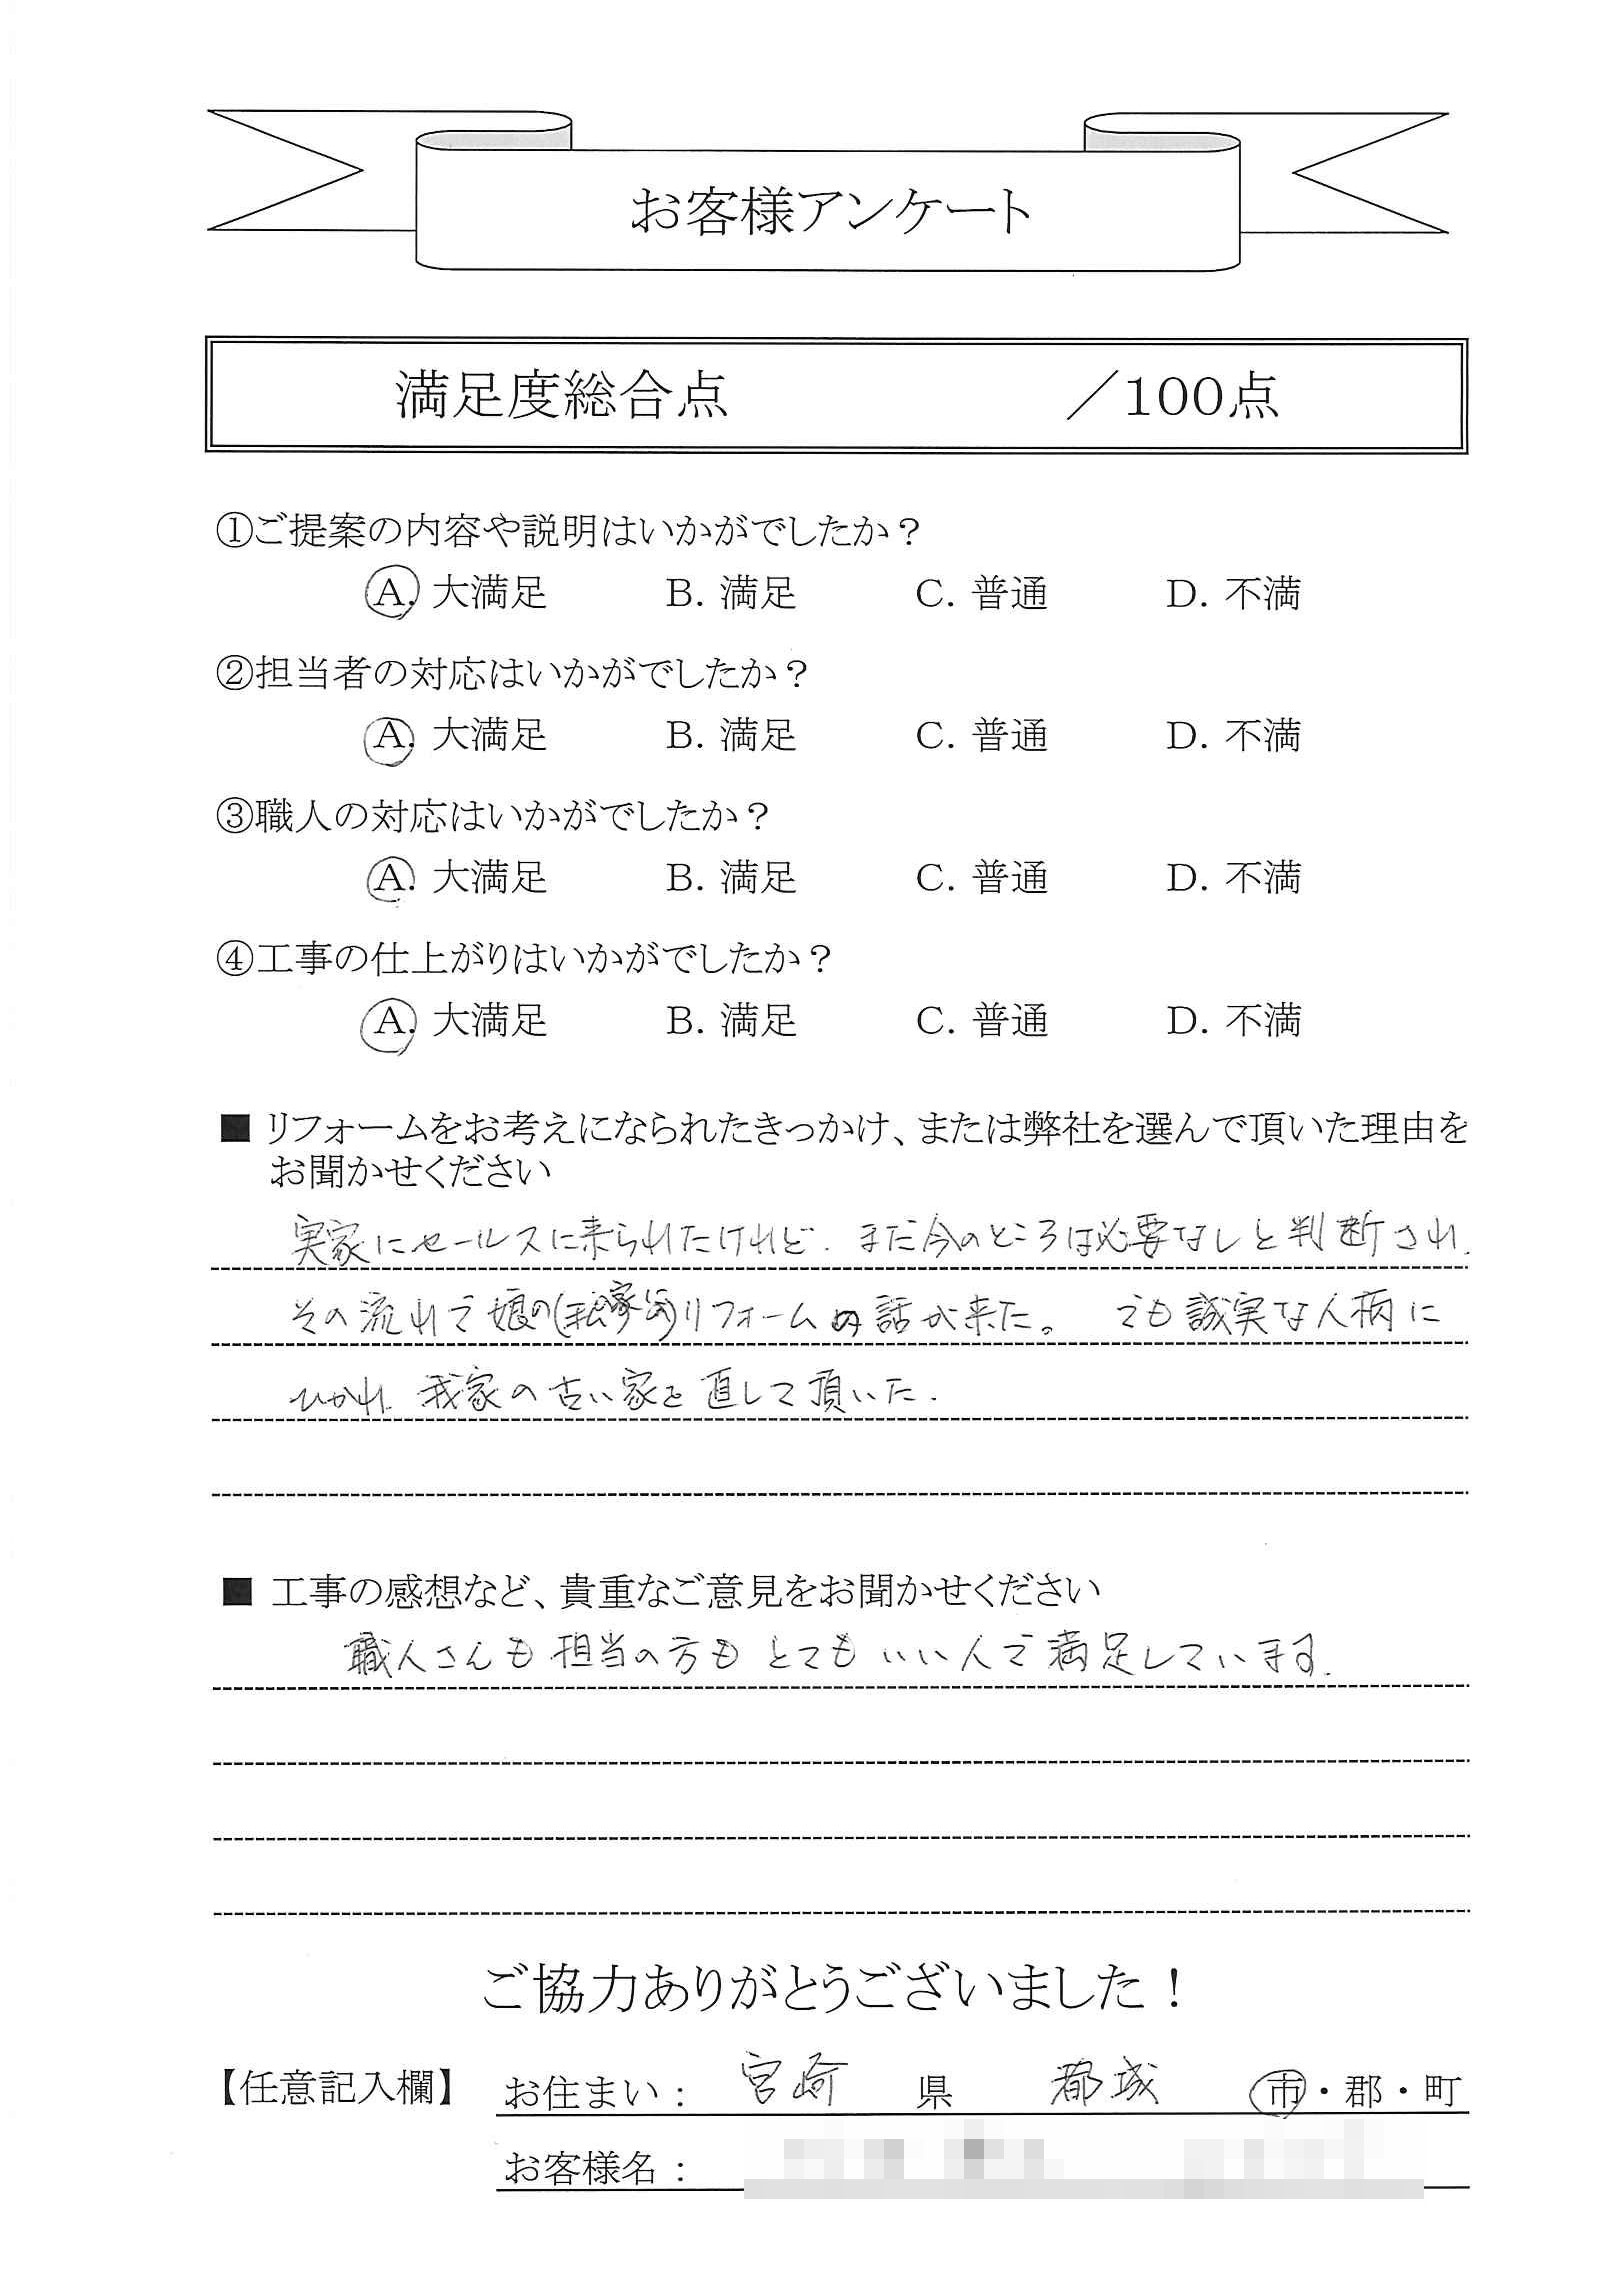 お客様アンケート
満足度総合点　　／100点
①ご提案の内容や説明はいかがでしたか？
A. 大満足　B. 満足　C. 普通　D. 不満
②担当者の対応はいかがでしたか？
A. 大満足　B. 満足　C. 普通　D. 不満
③職人の対応はいかがでしたか？
A. 大満足　B. 満足　C. 普通　D. 不満
④工事の仕上がりはいかがでしたか？
A. 大満足　B. 満足　C. 普通　D. 不満
■ リフォームをお考えになられたきっかけ、または弊社を選んで頂いた理由を
お聞かせください
実家にセールスに来られたけれど、まだ今のところは必要なしと判断され、
その流れで娘の(私の家の)リフォームの話が来た。でも誠実な人柄に
ひかれ、我家の古い家を直して頂いた.
■ 工事の感想など、貴重なご意見をお聞かせください
職人さんも担当の方もとてもいい人で満足しています.
ご協力ありがとうございました！
【任意記入欄】 お住まい： 宮崎 県 都城 市・郡・町
お客様名：